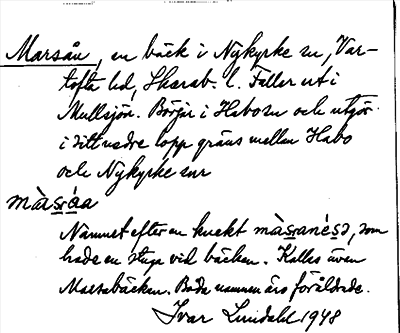 Marsån, en bäck i Nykyrke sn, Var-
tofta hd, Skarab. l. Faller ut i
Mullsjön. Börjar i Habo sn och utgör
i sitt nedre lopp gräns mellan Habo
och Nykyrke snr
màs̱ɷ́a
Namnet efter en knekt màs̱anés̱ə, som
hade en stuga vid bäcken. Kallas även
Marsabäcken. Båda namnen äro föråldrade.
Ivar Lundahl 1948